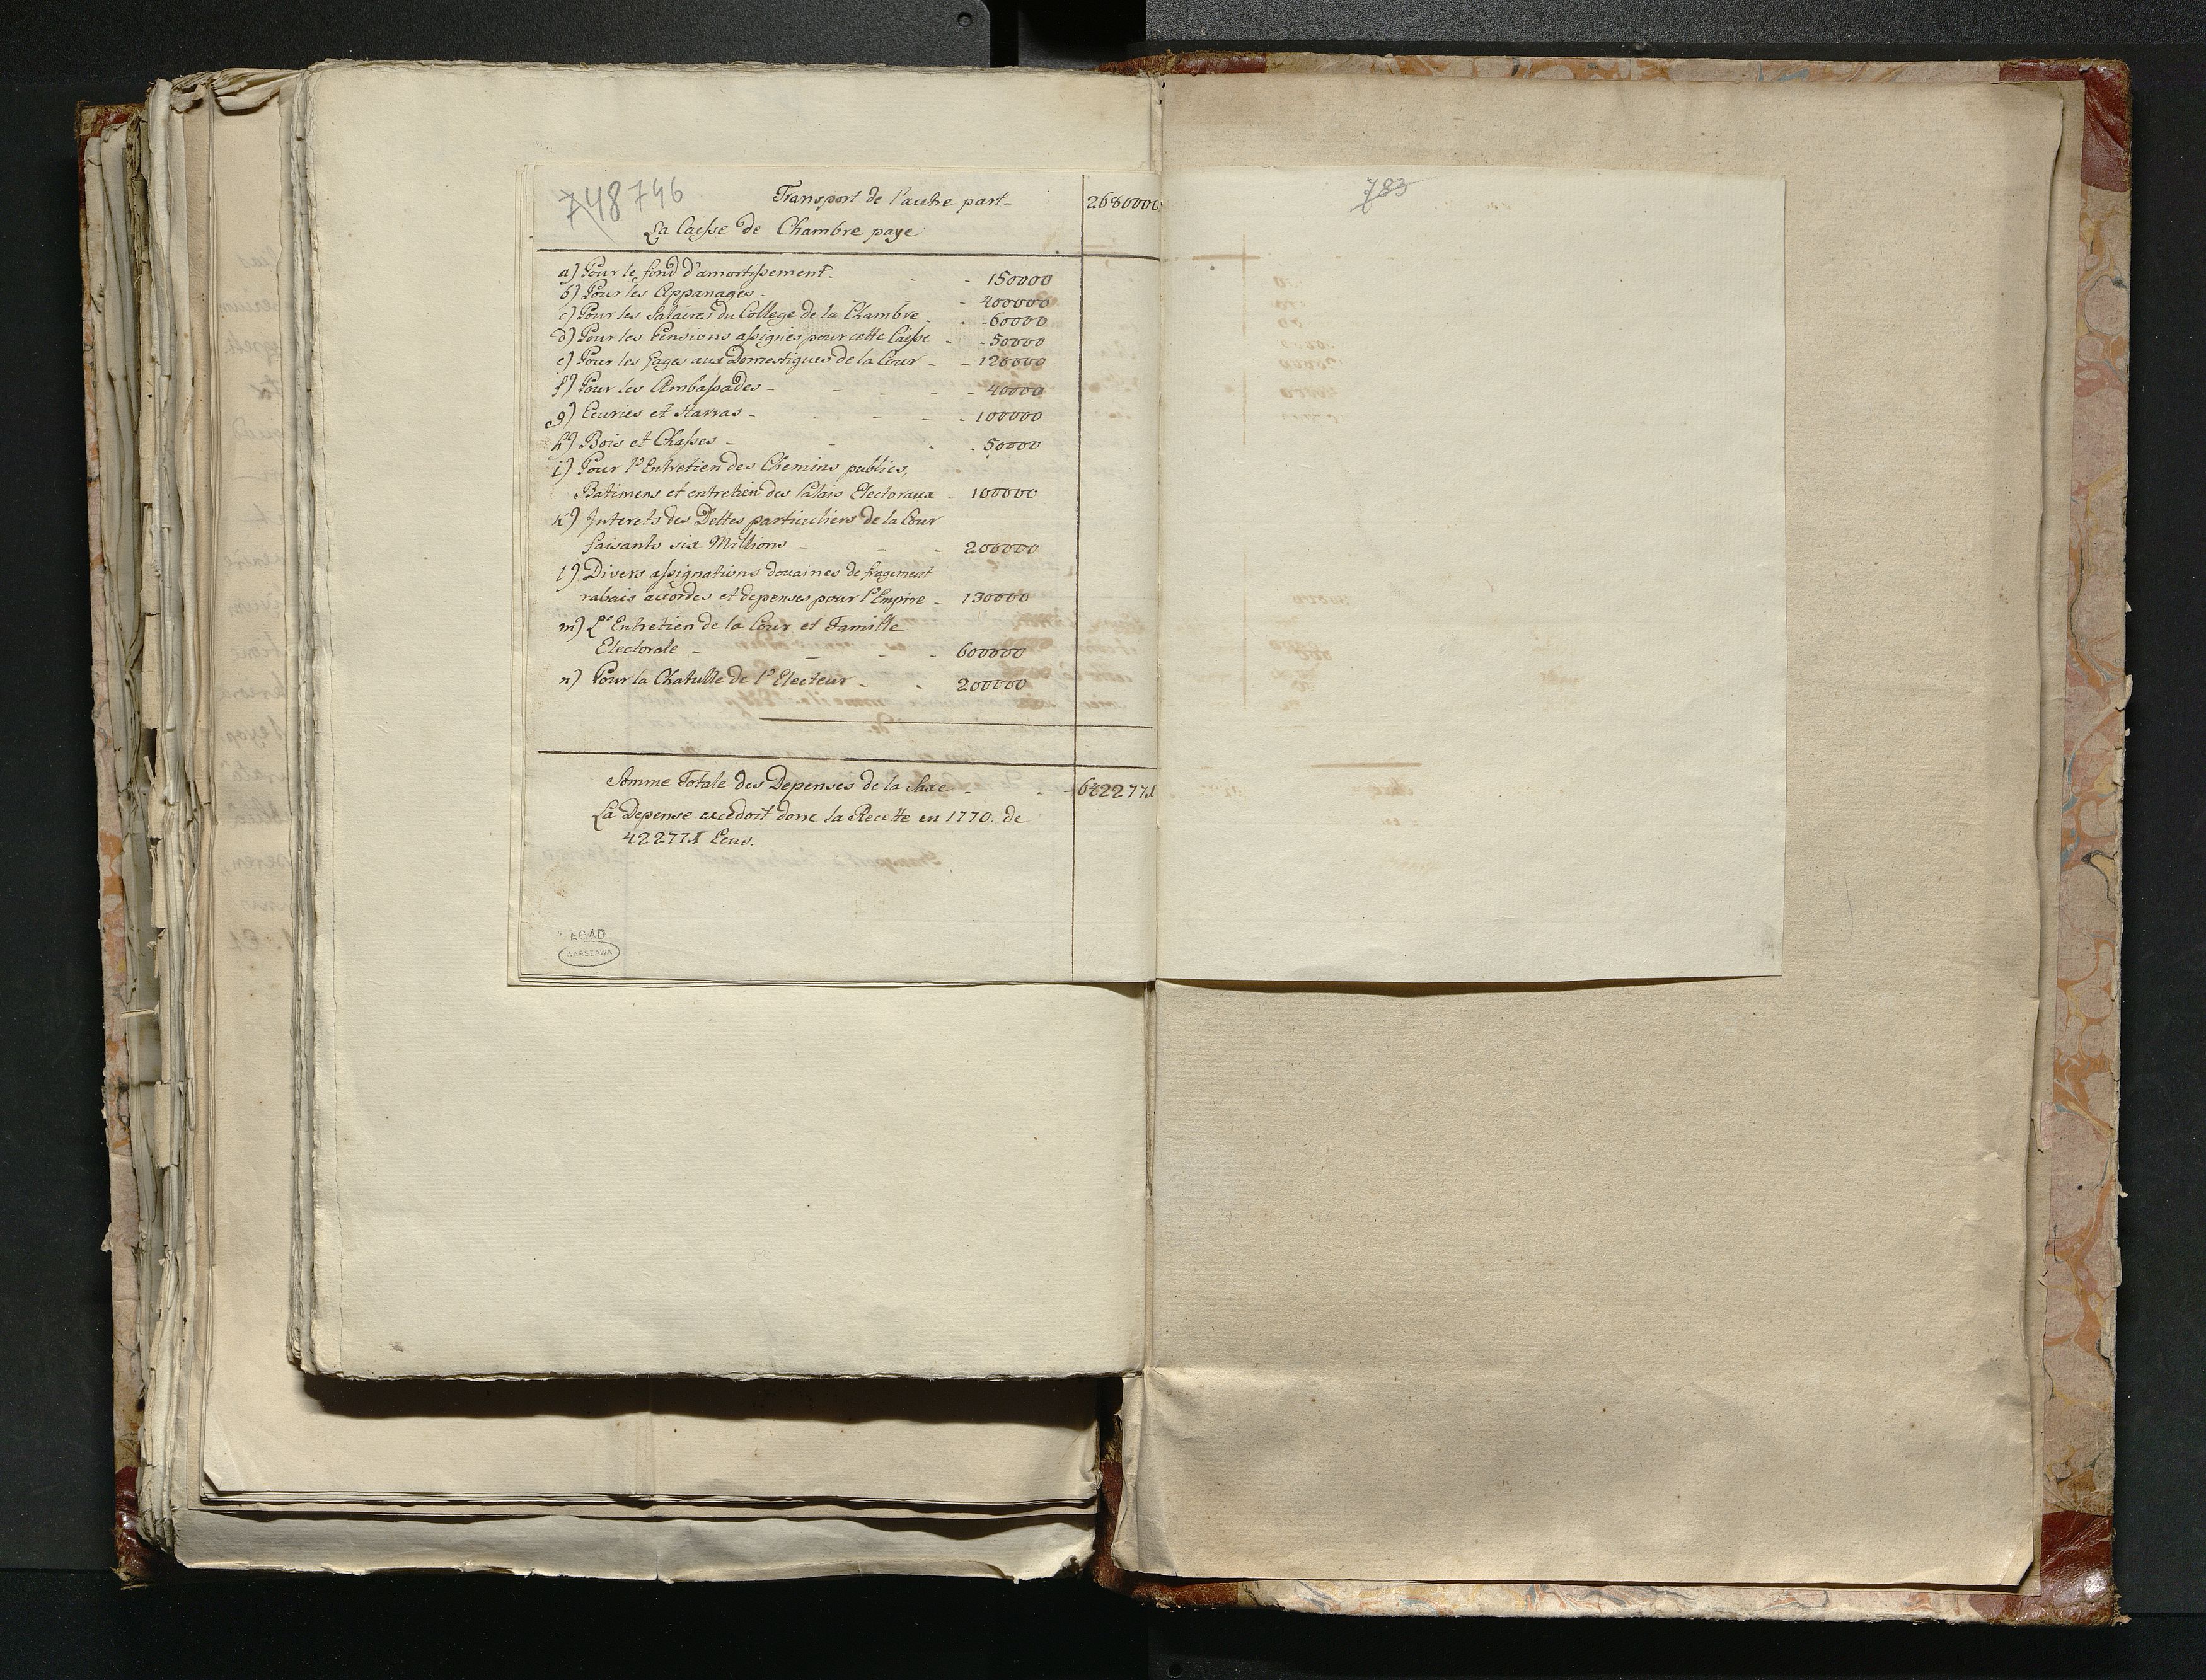 748 746
Transport de l'autre part- 2680000
La Caisse de Chambre paye
a) Pour le fond d'amortissement - - 150000
b) Pour les Appanages - - 400000
c) Pour les Salaires du College de la Chambre - - 60000
d) Pour les Pensions assignés pour cette Caisse - - 50000
e) Pour les Gages aux Domestiques de la Cour - - 120000
f) Pour les Ambassades - - - - 40000
g) Ecuries et Harras - - - - 100000
h) Bois et Chasses - - - - 50000
i) Pour l'Entretien des Chemins publics,
Batimens et entretien des Palais Electoraux - 100000
k) Interets des Dettes particuliers de la Cour
faisants six Millions - - - 200000
l) Divers assignations douaines de
rabais accordés et depenses pour l'Empire - 130000
m) L'Entretien de la Cour et Famille
Electorale - - - - 600000
n) Pour la Chatulle de l'Electeur - - 200000
Somme Totale des Depenses de la Saxe - - -
La Depense excedoit donc la Recette en 1770. de
Ecus.
AGAD
WARSZAWA
783